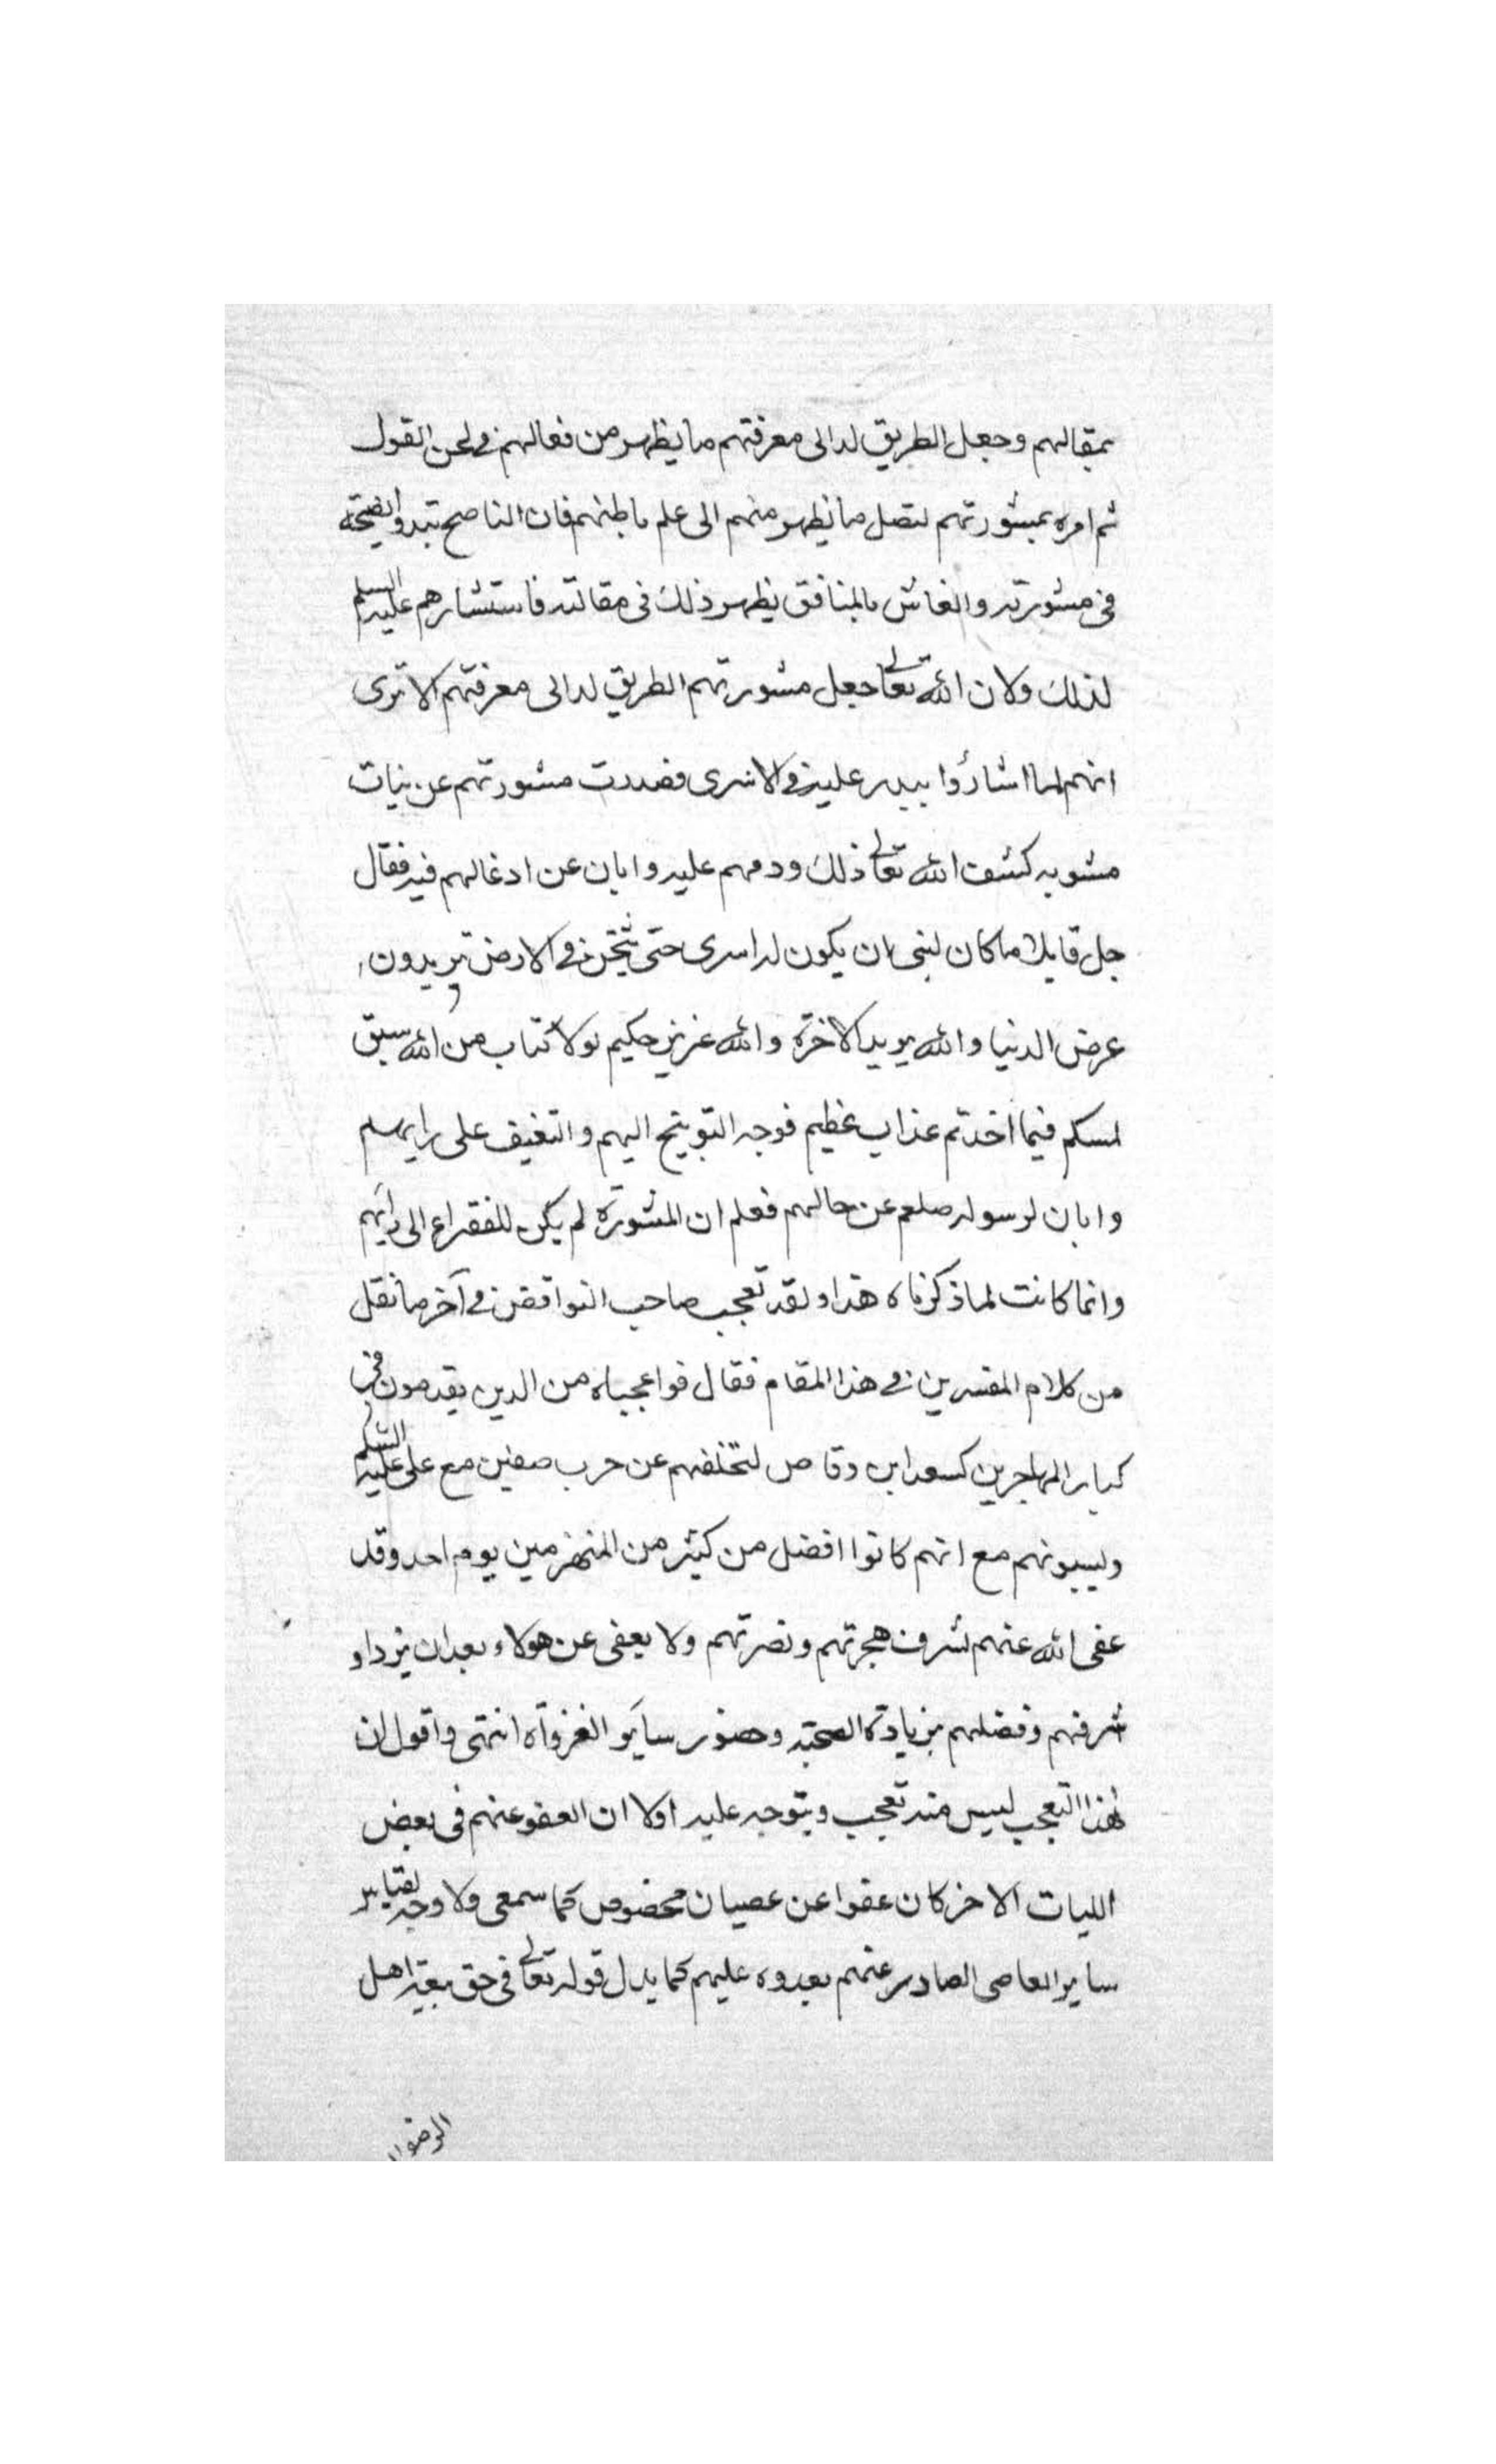 بمقالهم وجعل الطريق له الى معرفتهم ما يظهر من فعالهم في لحن القول
ثم امره بمشورتهم لتصل ما يظهر منهم الى علم باطنهم فان الناصح تبدو نصيحته
في مشورته والغاش المنافق يظهر ذلك في مقالته فاستشارهم عليه السلم
لذلك ولان الله تعالى جعل مشورتهم الطريق له الى معرفتهم الا ترى
انهم لما اشاروا ببدر عليه في الاسرى فصدرت مشورتهم عن نيات
مشوبه كشف الله تعالى ذلك وذمهم عليه وابان عن ادغالهم فيه فقال
جل قايلا ما كان لنبي ان يكون له اسرى حتى يثخن في الارض تريدون
عرض الدنيا والله يريد الاخرة والله عزيز حكيم لولا كتاب من الله سبق
لمسكم فيما اخذتم عذاب عظيم فوجه التوبيخ اليهم والتعنيف على رايهم
وابان لرسوله صلعم عن حالهم فعلم ان المشورة لم يكن للفقر الى رائهم
وانما كانت لما ذكرناه هذا ولقد تعجب صاحب النواقض في آخر ما نقل
من كلام المفسرين في هذا المقام فقال فواعجباه من الذين يقدمون في
كبار المهاجرين كسعد ابن وقاص لتخلفهم عن حرب صفين مع على عليه السلم
ويسبونهم مع انهم كانوا افضل من كثير من المنهزمين يوم احد وقد
عفى الله عنهم لشرف هجرتهم ونصرتهم ولا يعفى عن هولاء بعد ان يزداد
شرفهم وفضلهم بزيادة الصحبته وحضور ساير الغزواة انتهى واقول ان
هذا التعجب ليس منه تعجب ويتوجه عليه اولا ان العفو عنهم في بعض
الليات الاخر كان عفوا عن عصيان مخصوص كما سمعى ولا وجه لقياس
ساير المعاصى الصادر عنهم بعدوه عليهم كما يدل قوله تعالى في حق بيعة اهل
الرضوا